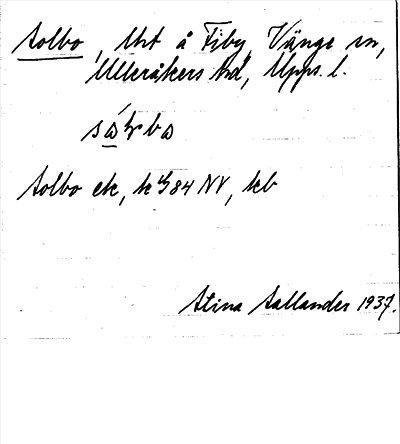 Solbo, Uht å Fiby, Vänge sn,
Ulleråkers hd, Upps. l.
Solbo ek, k 84 NV, kb
Stina Sallander 1937.